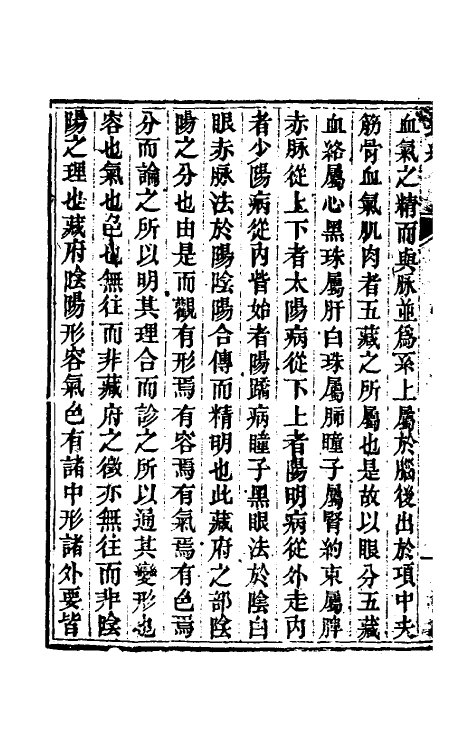 血氣之精而與脉並爲系上屬於腦後出於項中夫
筋骨血氣肌肉者五藏之所屬也是故以眼分五藏
血絡屬心黑珠屬肝白珠屬肺瞳子屬腎約束屬脾
赤脉從上下者太陽病從下上者陽明病從外走内
者少陽病從内眥始者陽蹻病瞳子黑眼法於陰白
眼赤脉法於陽陰陽合傳而精明也此藏府之部陰
陽之分也由是而觀有形焉有容焉有氣焉有色焉
分而論之所以明其理合而診之所以通其變形也
容也氣也色也無往而非藏府之徵亦無往而非陰
陽之理也藏府陰陽形容氣色有諸中形諸外要皆